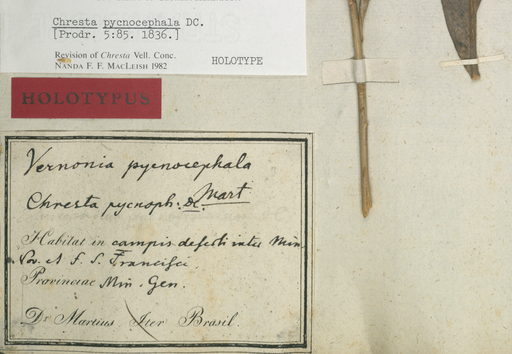 Chresta pycnocephala DC.
[Prodr. 5:85. 1836.]
Revision of Chresta Vell. Conc.
NANDA F. F. MACLEISH 1982
HOLOTYPE
HOLOTYPUS
Vernonia pycnocephala
Chresta pycnoph: DC. Mart
Habitat in campis deserti inter Min.
Nov. et F. S. Francisci.
Provinciae Min. Gen.
Dr Martius Iter Brasil.